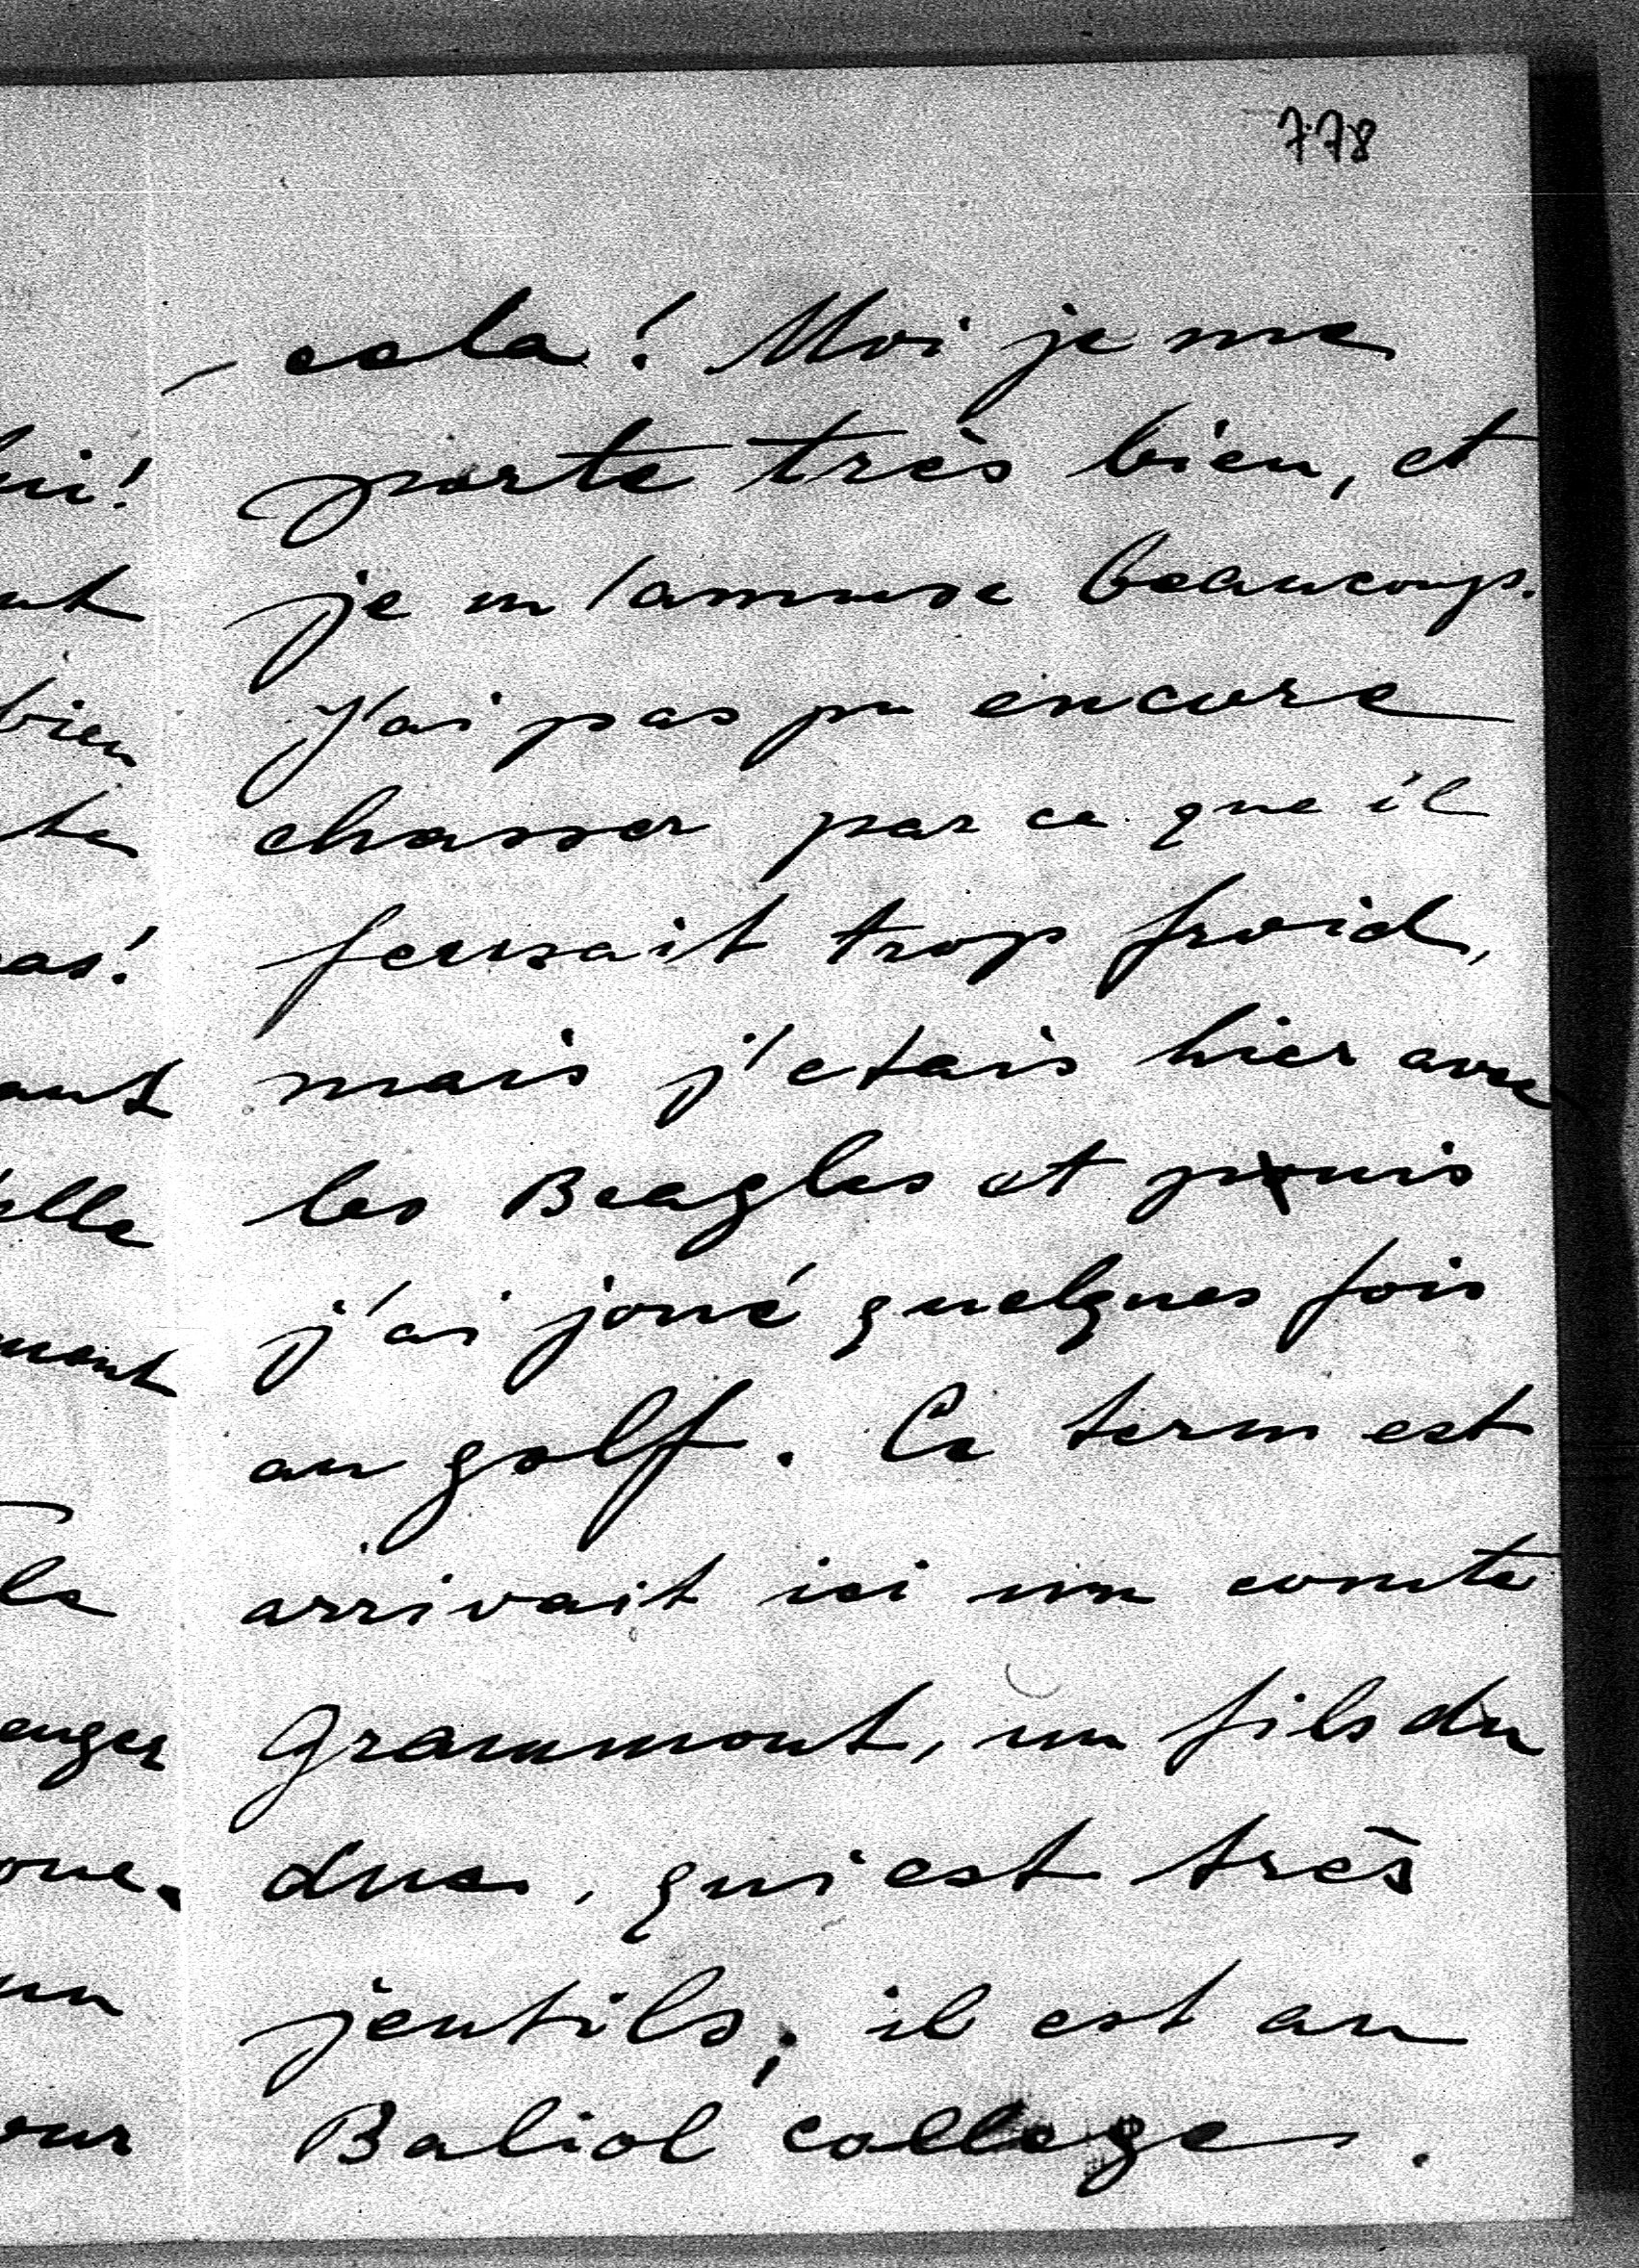 778
cela! Moi je me
porte très bien, et
je m'amuse beaucoup.
J'ai pas pu encore
chasser par ce que il
fersait trop froid,
mais j'etais hier avec
les Beagles et puis
j'ai joué quelques fois
au golf. Ce term est
arrivait ici un comte
Grammont, un fils du
duc, qui est très
jentils; il est au
Baliol college.